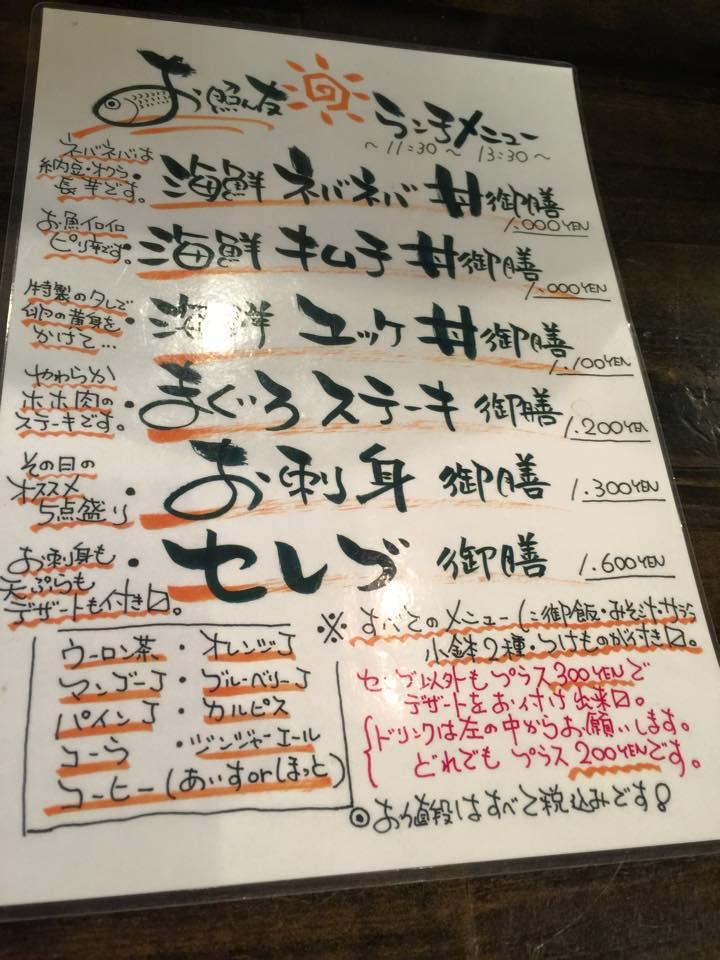 お照ん友 ランチメニュー
～11:30～13:30～
ネバネバは
納豆・オクラ・
長芋です。
海鮮 ネバネバ 丼 御膳
1.000YEN
お魚イロイロ
ピリ辛です。
海鮮 キムチ 丼 御膳
1.000YEN
特製のタレで
卵の黄身を
かけて…
海鮮 ユッケ 丼 御膳
1.100YEN
やわらか
ホホ肉の
ステーキです。
まぐろ ステーキ 御膳
1.200YEN
その日の
オススメ
5点盛り
お刺身 御膳
1.300YEN
お刺身も
天ぷらも
デザートも付き□。
セレブ 御膳
1.600YEN
ウーロン茶・オレンジJ
マンゴーJ・ブルーベリーJ
パインJ・カルピス
コーラ・ジンジャーエール
コーヒー(あいすorほっと)
※すべてのメニューに御飯・みそ汁・サラダ
小鉢2種・つけものが付き□。
セレブ以外もプラス300YENで
デザートをお付け出来□。
ドリンクは左の中からお願いします。
どれでもプラス200YENです。
◎お値段はすべて税込みです!